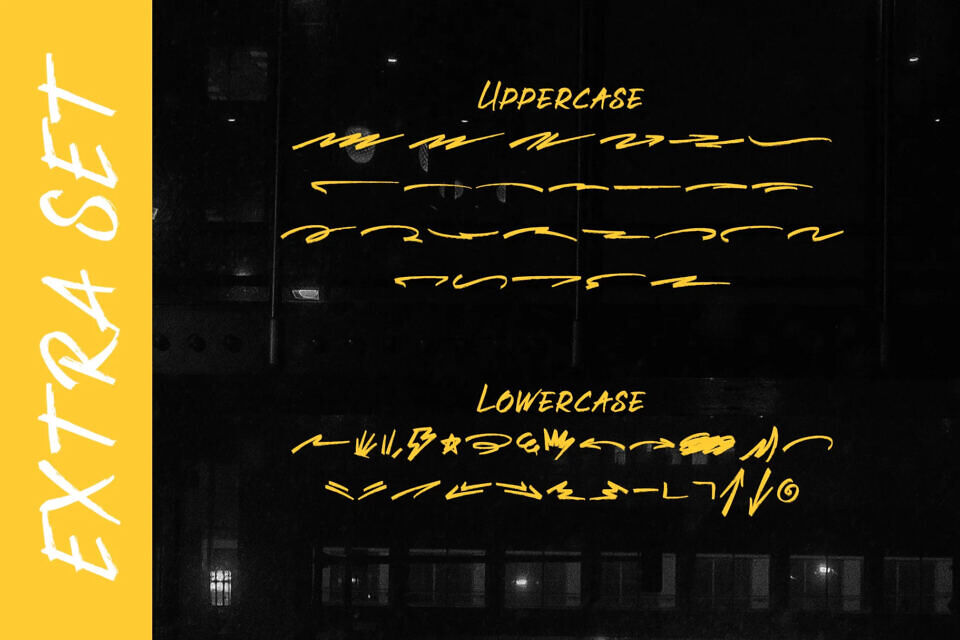 EXTRA SET
UPPERCASE
LOWERCASE